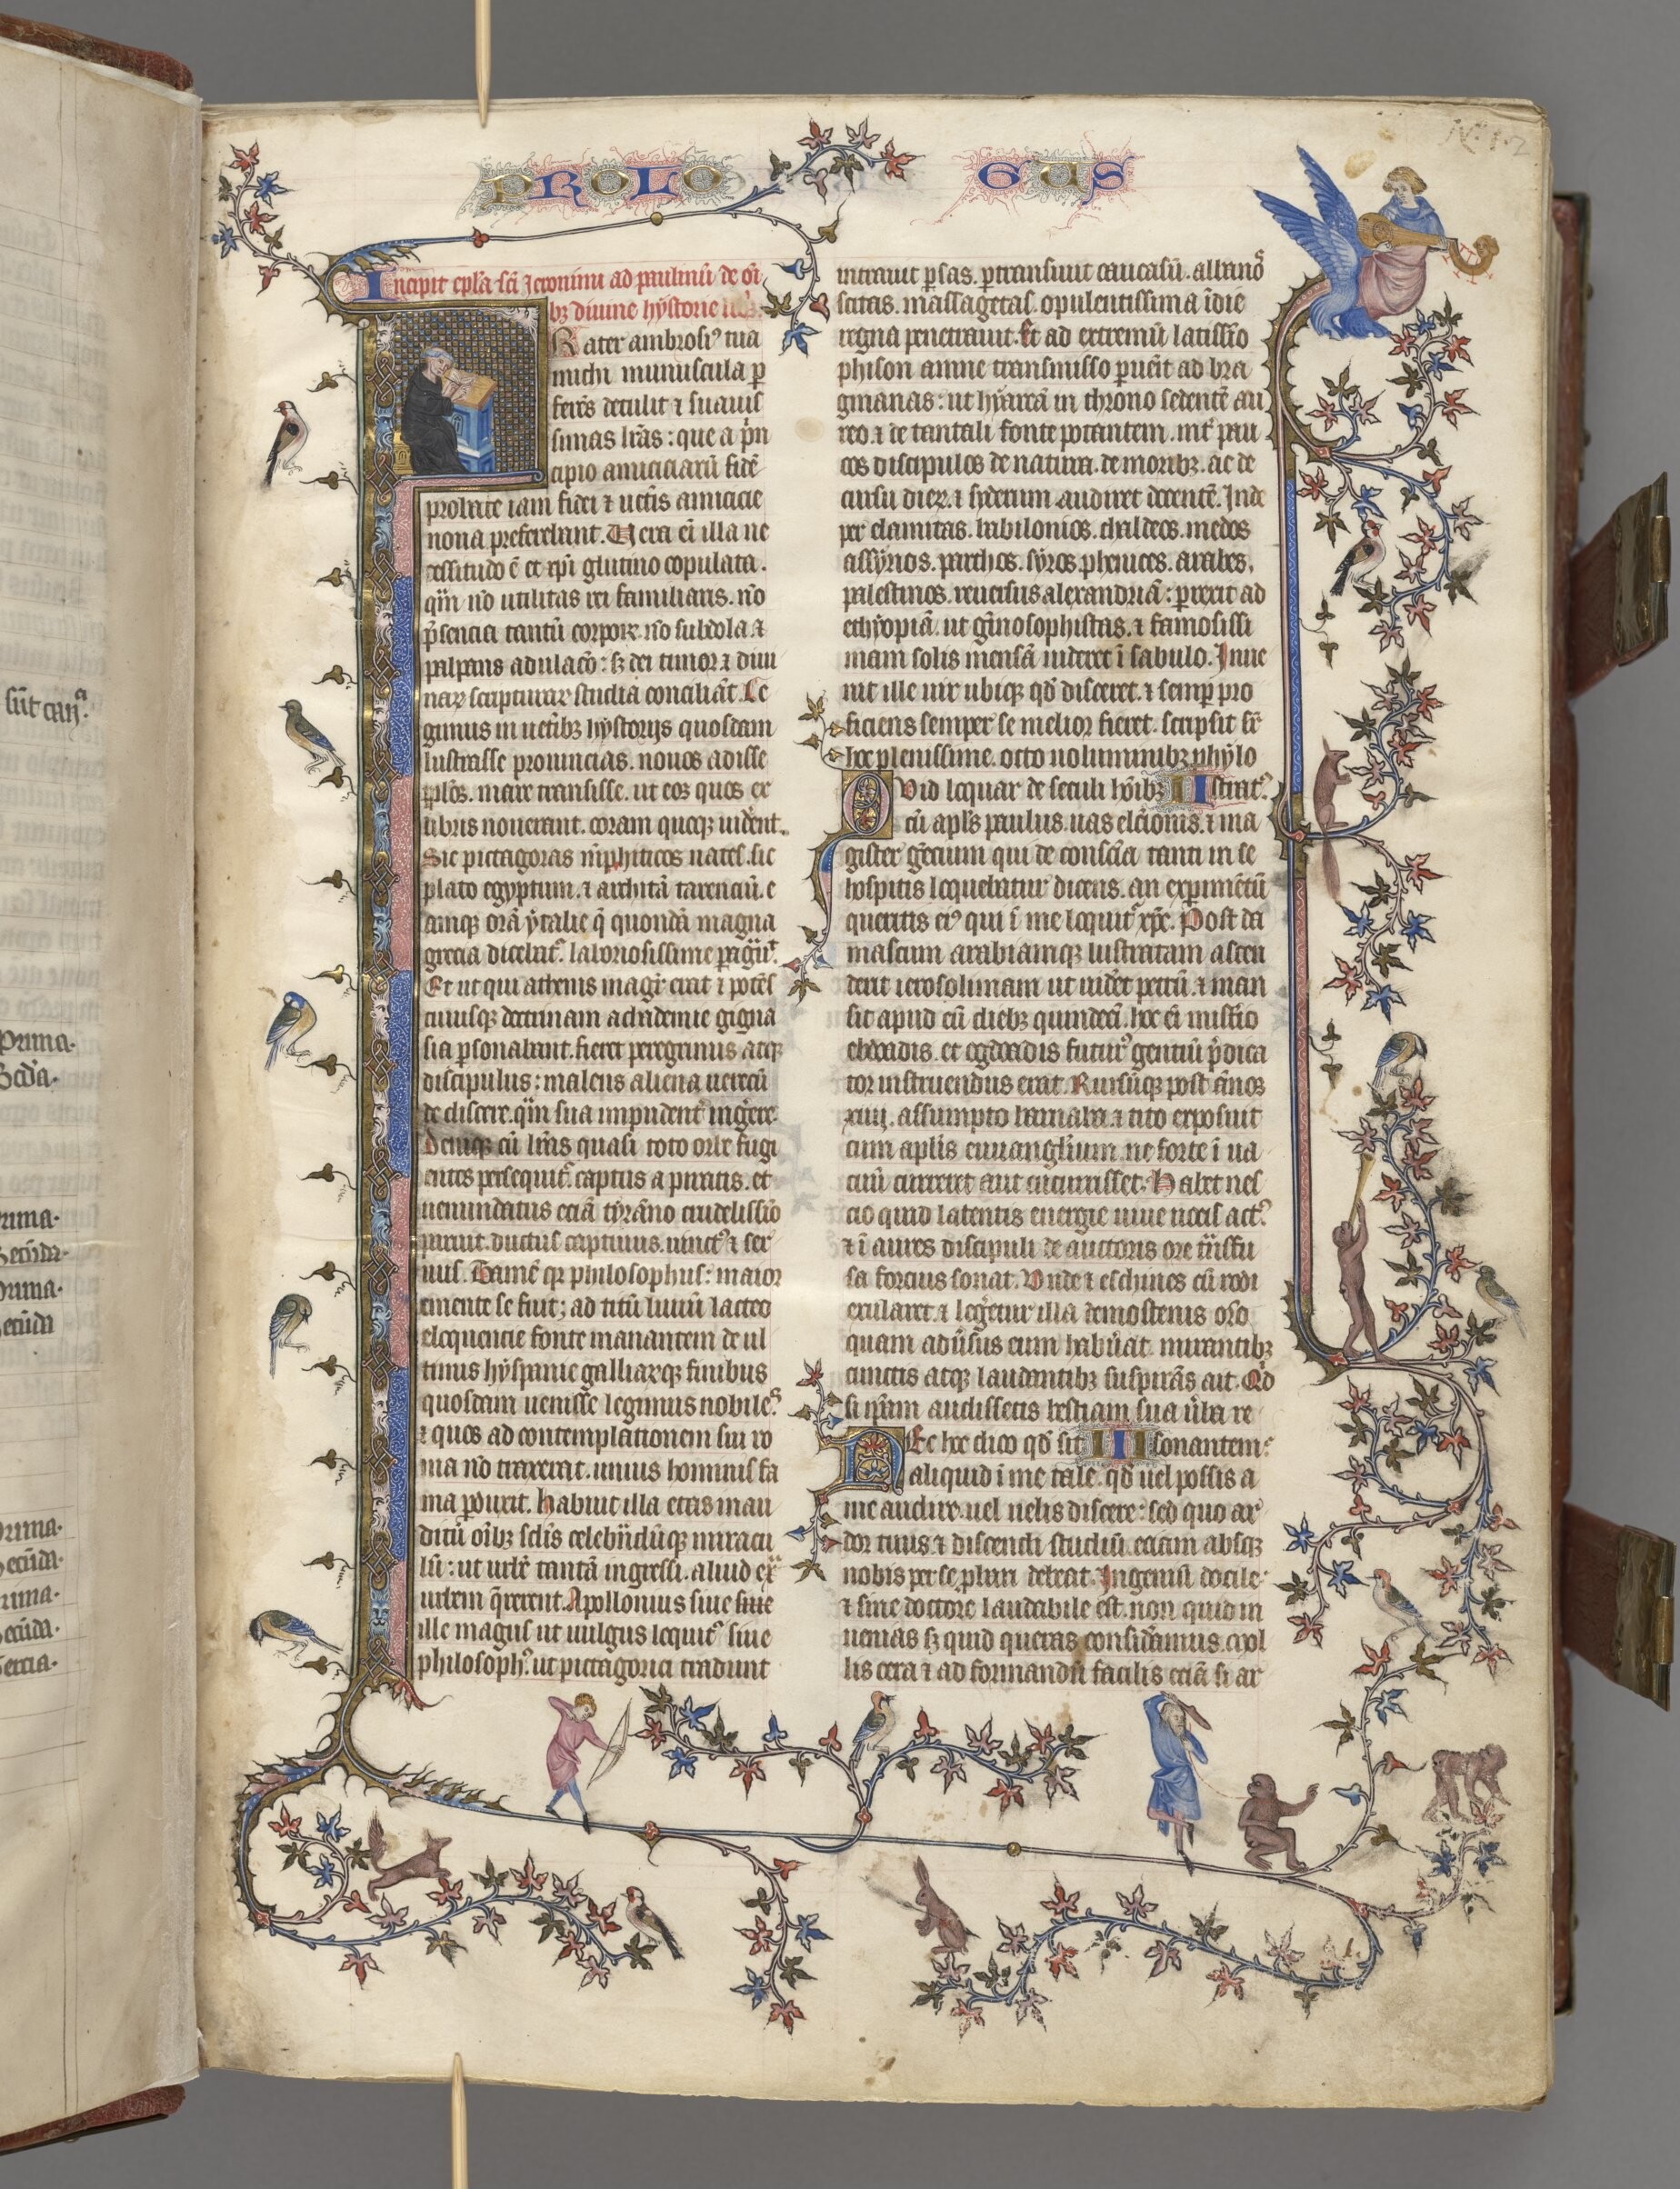 PROLO GUS
Incipit epl'a sci Jeronimi ad paulinū de oī
bꝫ divine hystorie lib
Rater ambrosiꝰ tua
michi munuscula ꝑ
ferēs detulit ⁊ suauis
simas lrās: que a p̄n
cipio amiciciarū fidē
probate iam fidei ⁊ uetis amicicie
noua preferebant. Uera eī illa ne
cessitudo ē et xp̄i glutino copulata.
qm̄ nō utilitas rei familiaris. nō
p̄sencia tantū corporꝫ. nō subdola ⁊
palpans adulacō: sꝫ dei timor ⁊ diui
naꝝ scripturaꝝ studia conciliāt. Le
gimus in uetibꝫ hystorijs quosdam
lustrasse prouincias. nouos adisse
pp̄los. maria transisse. ut eos quos ex
libris nouerant. coram quoqꝫ uiderent.
Sic pictagoras mēphiticos uates. sic
plato egyptum. ⁊ architā tarentinū. e
amqꝫ orā ytalie q̄ quondā magna
grecia dicebat᷑. laboriosissime ꝑagrūt
Et ut qui athenis magr̄ erat ⁊ potēs
cuiusqꝫ doctrinam achademie gigna
sia ꝑsonabant. fieret peregrinus atqꝫ
discipulus: malens aliena uerecū
de discere. qm̄ sua impudent᷑ ingerere.
Deniqꝫ cū lr̄as quasi toto orbe fugi
entes persequit᷑. captus a piratis. et
uenundatus eciā tyrāno crudelissīo
paruit. ductus captiuus. uinctꝰ ⁊ ser
uus. Tamē qꝛ philosophus: maior
emente se fuit; ad titū liuiū lacteo
eloquencie fonte manantem de ul
timis hyspanie galliarꝫqꝫ finibus
quosdam uenisse legimus nobileˢ
⁊ quos ad contemplationem sui ro
ma nō traxerat. unius hominis fa
ma ꝑduxit. Habuit illa etas inau
ditū oībꝫ sclis celebrādūqꝫ miracu
lū: ut urbē tantā ingressi. aliud exᵃ
urbem q̄rerent. Apollonius siue
ille magus ut uulgus loquit᷑ siue
philosophꝰ. ut pictagorici tradunt
intrauit ꝑsas. ꝑtransiuit caucasū. albanoˢ
scitas. massagetas. opulentissima īdie
regna penetrauit. Et ad extremū latissīo
phison amne transmisso ꝑuēit ad bra
gmanas: ut hyarcā in throno sedentē au
reo. ⁊ de tantali fonte potantem. int᷑ pau
cos discipulos de natura. de moribꝫ. ac de
cursu dieꝝ. ⁊ syderum audiret docentē. Inde
per elamitas. babilonios. chaldeos. medos
assyrios. parthos. syros. phenices. arabes.
palestinos. reuersus alexandriā: ꝑrexit ad
ethyopiā. ut gīnosophistas. ⁊ famosissi
mam solis mensā uideret ī sabulo. Inue
nit ille uir ubiqꝫ qd̄ disceret. ⁊ semꝑ pro
ficiens semper se melior fieret. scripsit sr̄
hoc plenissime. octo uoluminibꝫ phylo
QVid loquar de seculi hoībꝫ II strat᷑.
cū apl's paulus. uas elc̄ionis. ⁊ ma
gister gēcium qui de consc̄ia tanti in se
hospitis loquebatur dicens. an experimētū
queritis eiꝰ qui ī me loquit᷑ xp̄c. Post da
mascum arabiamqꝫ lustratam ascen
derit ierosolimam ut uideret petrū. ⁊ man
sit apud eū diebꝫ quindecī. hoc eī misterīo
ebdoadis. et ogdoadis futurꝰ gentiū p̄dica
tor instruendus erat. Rursūqꝫ post ānos
xiiij. assumpto barnaba ⁊ tito exposuit
cum apl'is euuangl'ium. ne forte ī ua
cuū curreret aut cucurrisset. Habet nes
cio quid latentis energie uiue uocis actꝰ.
⁊ ī aures discipuli de auctoris ore trāsfu
sa forcius sonat. Vnde ⁊ eschines cū rodi
exularet. ⁊ legeretur illa demostenis orō
quam aduersus eum habuerat. mirantibꝫ
cunctis atqꝫ laudantibꝫ suspirās ait. Qd̄
si ip̄am audissetis bestiam sua uerba re
NEc hoc dico qd̄ sit III sonantem:
aliquid ī me tale. qd̄ uel possis a
me audire. uel uelis discere: sed quo ar
dor tuus. ⁊ discendi studiū. eciam absqꝫ
nobis per se ꝓbari debeat. Ingeniū docile
⁊ sine doctore laudabile est. non quid in
uenias sꝫ quid queras consideramus. mol
lis cera ⁊ ad formandū facilis eciā si ar
sūt cat.
Prima.
Scd̄a.
rima.
Secūda.
rima.
Secūda
rima.
Secūda.
rima.
Secūda.
Tercia.